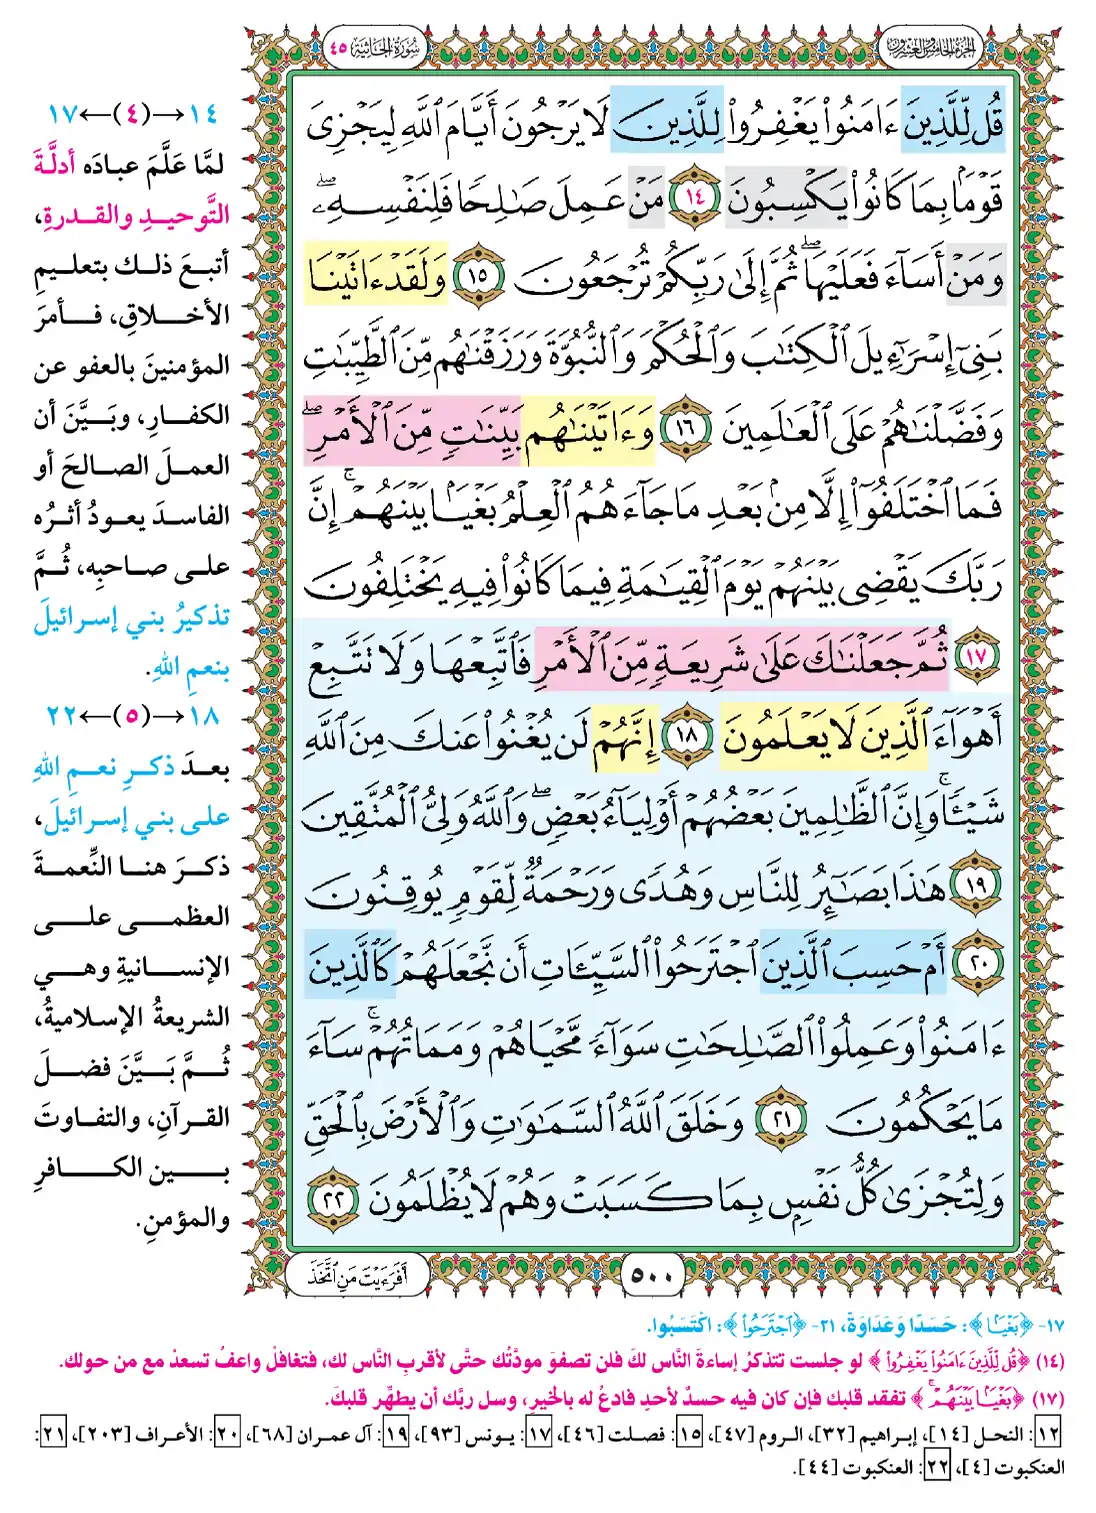 الجزء الخامس والعشرون
سورة الجاثية ٤٥
قُل لِّلَّذِينَ ءَامَنُوا۟ يَغْفِرُوا۟ لِلَّذِينَ لَا يَرْجُونَ أَيَّامَ ٱللَّهِ لِيَجْزِىَ
قَوْمًۢا بِمَا كَانُوا۟ يَكْسِبُونَ ١٤ مَنْ عَمِلَ صَٰلِحًا فَلِنَفْسِهِۦ ۖ
وَمَنْ أَسَآءَ فَعَلَيْهَا ۖ ثُمَّ إِلَىٰ رَبِّكُمْ تُرْجَعُونَ ١٥ وَلَقَدْ ءَاتَيْنَا
بَنِىٓ إِسْرَٰٓءِيلَ ٱلْكِتَٰبَ وَٱلْحُكْمَ وَٱلنُّبُوَّةَ وَرَزَقْنَٰهُم مِّنَ ٱلطَّيِّبَٰتِ
وَفَضَّلْنَٰهُمْ عَلَى ٱلْعَٰلَمِينَ ١٦ وَءَاتَيْنَٰهُم بَيِّنَٰتٍ مِّنَ ٱلْأَمْرِ ۖ
فَمَا ٱخْتَلَفُوٓا۟ إِلَّا مِنۢ بَعْدِ مَا جَآءَهُمُ ٱلْعِلْمُ بَغْيًۢا بَيْنَهُمْ ۚ إِنَّ
رَبَّكَ يَقْضِى بَيْنَهُمْ يَوْمَ ٱلْقِيَٰمَةِ فِيمَا كَانُوا۟ فِيهِ يَخْتَلِفُونَ
١٧ ثُمَّ جَعَلْنَٰكَ عَلَىٰ شَرِيعَةٍ مِّنَ ٱلْأَمْرِ فَٱتَّبِعْهَا وَلَا تَتَّبِعْ
أَهْوَآءَ ٱلَّذِينَ لَا يَعْلَمُونَ ١٨ إِنَّهُمْ لَن يُغْنُوا۟ عَنكَ مِنَ ٱللَّهِ
شَيْـًٔا ۚ وَإِنَّ ٱلظَّٰلِمِينَ بَعْضُهُمْ أَوْلِيَآءُ بَعْضٍ ۖ وَٱللَّهُ وَلِىُّ ٱلْمُتَّقِينَ
١٩ هَٰذَا بَصَٰٓئِرُ لِلنَّاسِ وَهُدًى وَرَحْمَةٌ لِّقَوْمٍ يُوقِنُونَ
٢٠ أَمْ حَسِبَ ٱلَّذِينَ ٱجْتَرَحُوا۟ ٱلسَّيِّـَٔاتِ أَن نَّجْعَلَهُمْ كَٱلَّذِينَ
ءَامَنُوا۟ وَعَمِلُوا۟ ٱلصَّٰلِحَٰتِ سَوَآءً مَّحْيَاهُمْ وَمَمَاتُهُمْ ۚ سَآءَ
مَا يَحْكُمُونَ ٢١ وَخَلَقَ ٱللَّهُ ٱلسَّمَٰوَٰتِ وَٱلْأَرْضَ بِٱلْحَقِّ
وَلِتُجْزَىٰ كُلُّ نَفْسٍۭ بِمَا كَسَبَتْ وَهُمْ لَا يُظْلَمُونَ ٢٢
٥٠٠
أَفَرَءَيْتَ مَنِ ٱتَّخَذَ
١٤→(٤)←١٧
لمَّا عَلَّمَ عبادَه أدلَّةَ
التَّوحيدِ والقدرةِ،
أتبعَ ذلك بتعليمِ
الأخلاقِ، فأمرَ
المؤمنينَ بالعفو عن
الكفارِ، وبَيَّنَ أن
العملَ الصالحَ أو
الفاسدَ يعودُ أثرُه
على صاحبِه، ثُمَّ
تذكيرُ بني إسرائيلَ
بنعمِ اللهِ.
١٨→(٥)←٢٢
بعدَ ذكرِ نعمِ اللهِ
على بني إسرائيلَ،
ذكرَ هنا النِّعمةَ
العظمى على
الإنسانيةِ وهي
الشريعةُ الإسلاميةُ،
ثُمَّ بَيَّنَ فضلَ
القرآنِ، والتفاوتَ
بين الكافرِ
والمؤمنِ.
١٧- ﴿بَغْيًۢا﴾: حَسَدًا وَعَدَاوَةً، ٢١- ﴿ٱجْتَرَحُوا۟﴾: اكْتَسَبُوا.
(١٤) ﴿قُل لِّلَّذِينَ ءَامَنُوا۟ يَغْفِرُوا۟﴾ لو جلست تتذكرُ إساءةَ النَّاس لكَ فلن تصفوَ مودَّتُك حتَّى لأقربِ النَّاس لك، فتغافلْ واعفُ تسعدْ مع من حولك.
(١٧) ﴿بَغْيًۢا بَيْنَهُمْ ۚ﴾ تفقد قلبك فإن كان فيه حسدٌ لأحدٍ فادعُ له بالخيرِ، وسل ربَّك أن يطهِّر قلبكَ.
١٢: النحل [١٤]، إبراهيم [٣٢]، الروم [٤٧]، ١٥: فصلت [٤٦]، ١٧: يونس [٩٣]، ١٩: آل عمران [٦٨]، ٢٠: الأعراف [٢٠٣]، ٢١:
العنكبوت [٤]، ٢٢: العنكبوت [٤٤].